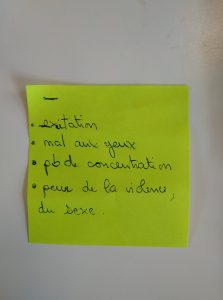 -
• exitation
• mal aux yeux
• pb de concentration
• peur de la violence,
du sexe.